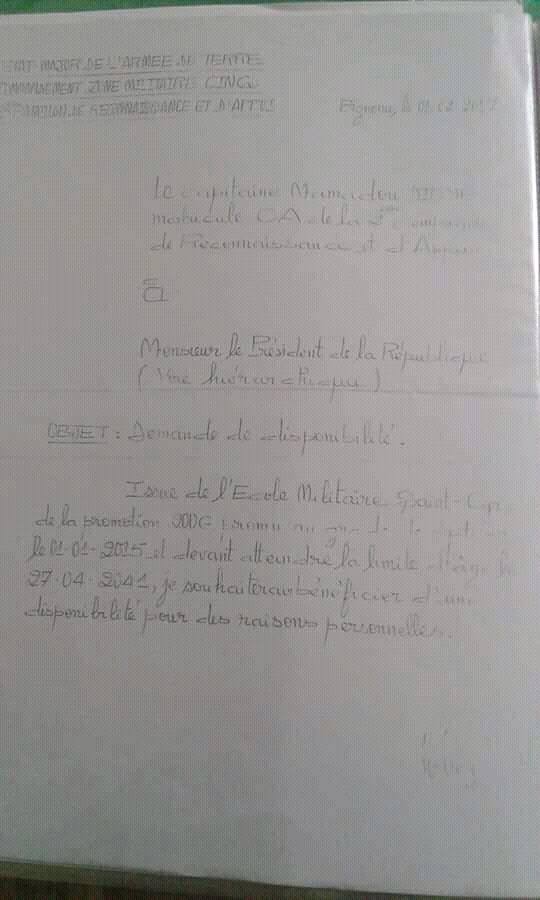 ETAT MAJOR DE L'ARMEE DE TERRE
COMMANDEMENT ZONE MILITAIRE CINQ
DE RECONNAISSANCE ET D'APPUI
Bignona, le
Le capitaine Mamadou
matricule CA de la compagnie
de Reconnaissance et d'Appui
à
Monsieur le Président de la République
(Voie hiérarchique)
OBJET : Demande de disponibilité.
Issue de l'Ecole Militaire Saint-Cyr
de la promotion promu au
le 01-01-2015 et devant atteindre la limite d'âge le
27-04-2041, je souhaiterais bénéficier d'une
disponibilité pour des raisons personnelles.